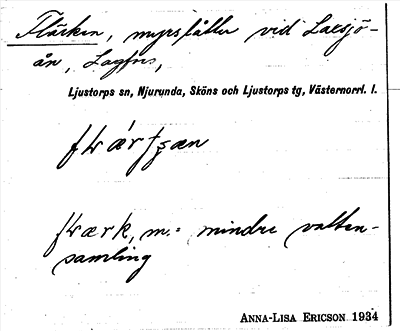 Flärken, myrslåtter vid Laxsjö-
ån, Lagfors,
Ljustorps sn, Njurunda, Sköns och Ljustorps tg, Västernorrl. l.
flærk, m.: mindre vatten-
samling
ANNA-LISA ERICSON 1934